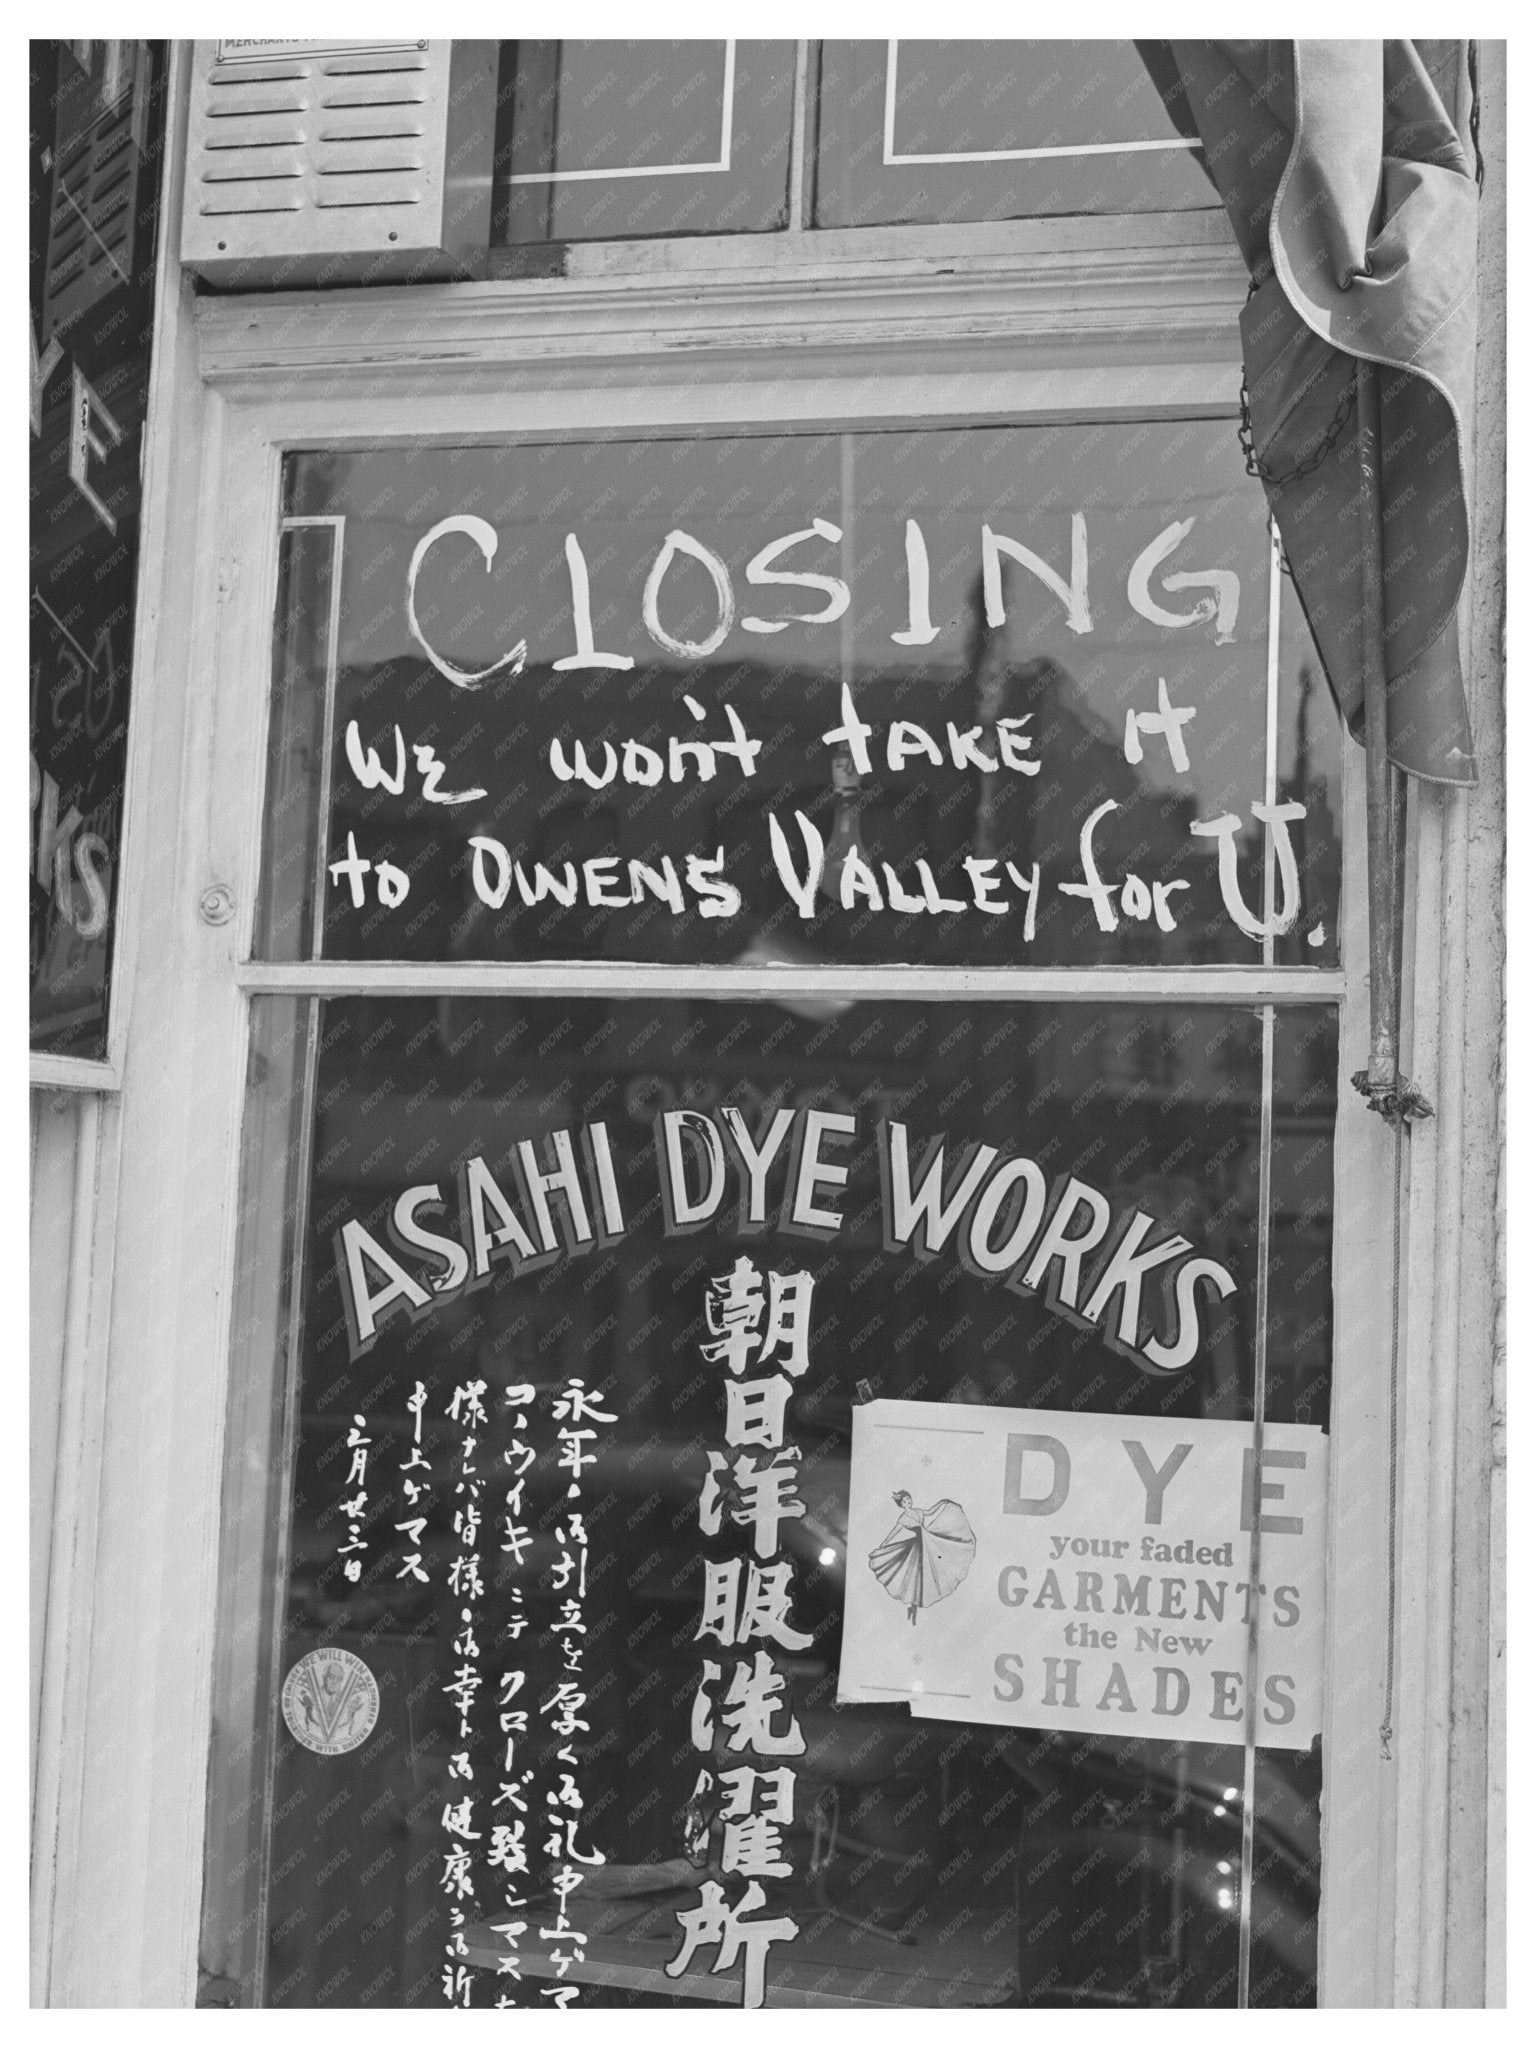 MERCHANTS
YE
RKS
CLOSING
WE won't TAKE it
to OWENS VALLEY for U.
ASAHI DYE WORKS
朝日洋服洗濯所
DYE
your faded
GARMENTS
the New
SHADES
永年御引立を厚く御礼申上ゲマ
コノウイキニテクローズ致シマス
様ナレバ皆様ノ御幸ト御健康ヲ御祈
申上ゲマス
三月廿三日
WE WILL WIN
KNOWOL